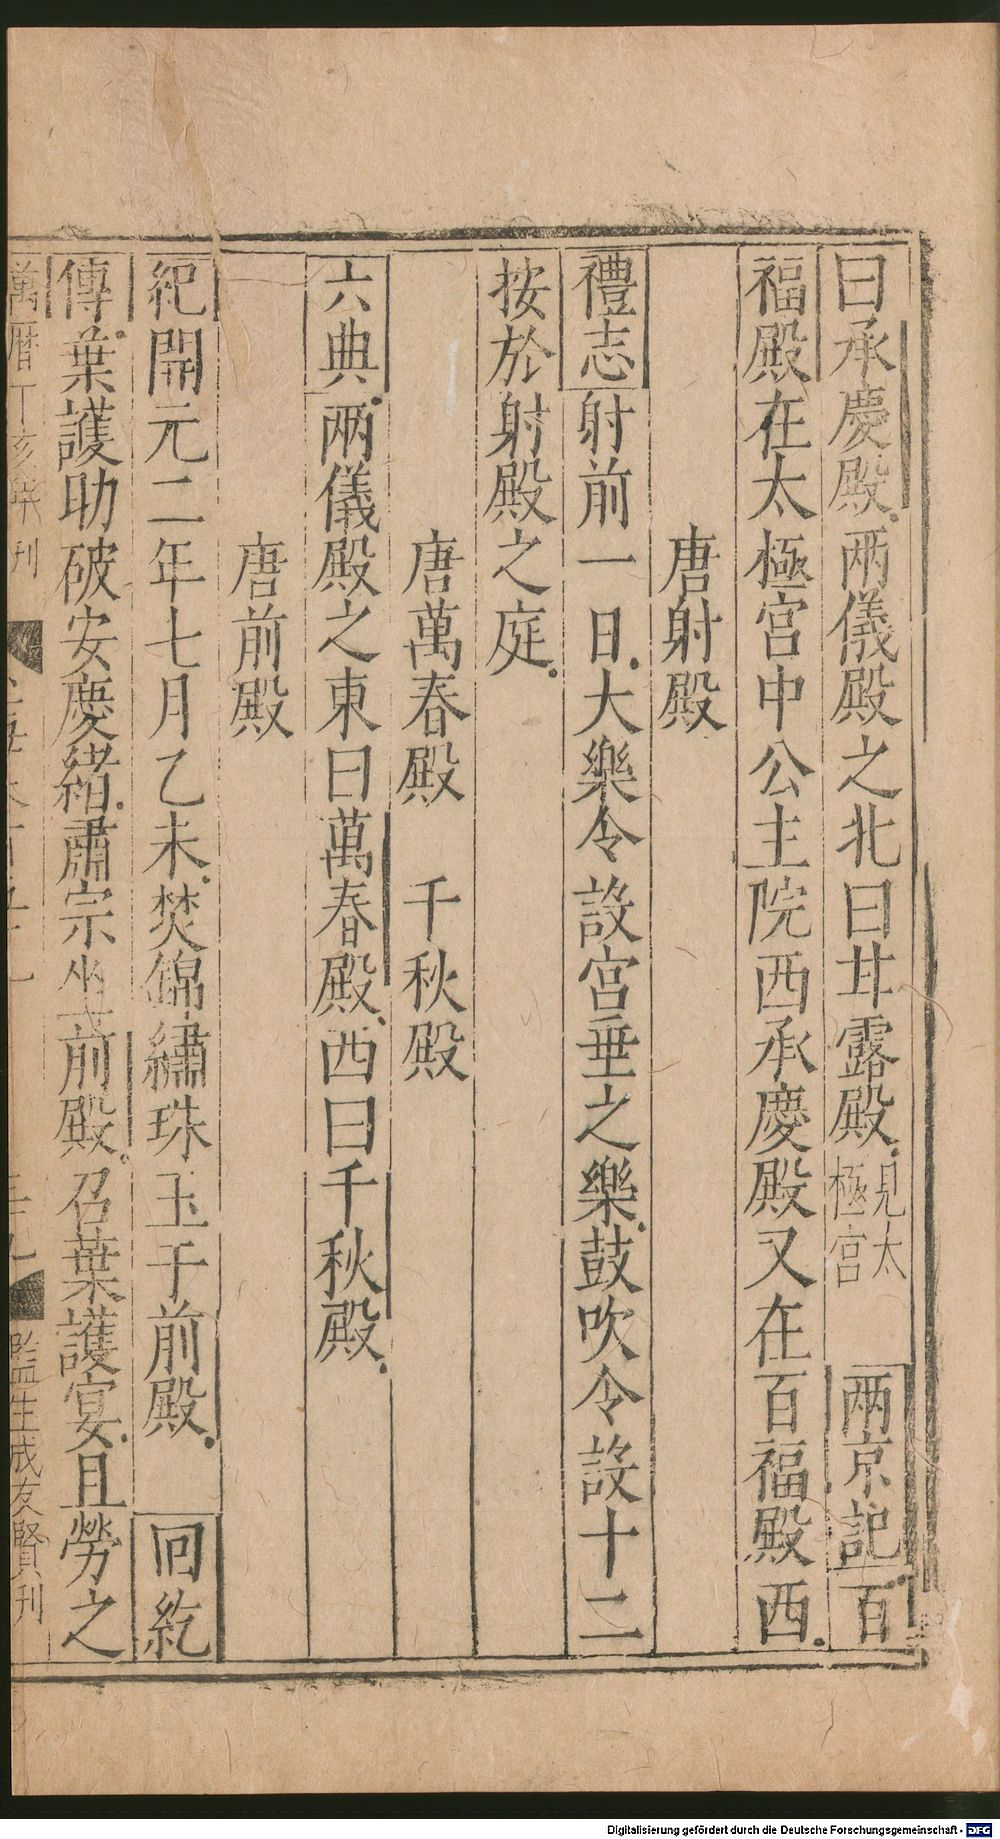 曰承慶殿兩儀殿之北曰甘露殿見太極宮兩京記百
福殿在太極宮中公主院西承慶殿又在百福殿西
唐射殿
禮志射前一日大樂令設宮垂之樂鼓吹令設十二
按於射殿之庭
唐萬春殿　千秋殿
六典兩儀殿之東曰萬春殿西曰千秋殿
唐前殿
紀開元二年七月乙未焚錦繡珠玉于前殿　回紇
傳葉護助破安慶緒肅宗坐前殿召葉護宴且勞之
萬曆丁亥年刊
監生成友賢刊
Digitalisierung gefördert durch die Deutsche Forschungsgemeinschaft - DFG